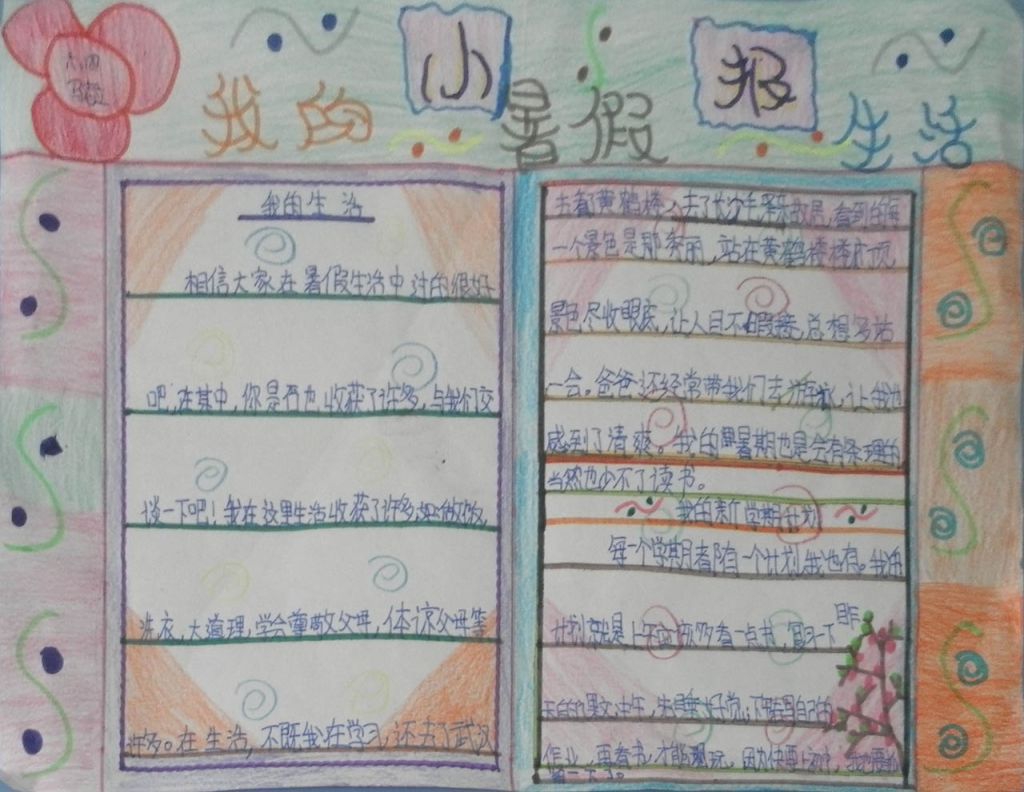 六四
小 报
我的暑假生活
我的生活
相信大家在暑假生活中过的很好
吧,在其中,你是否也收获了许多,与我们交
谈一下吧!我在这里生活收获了许多如做饭,
洗衣,大道理,学会尊敬父母,体谅父母等
许多。在生活,不既我在学习,还去了武汉
去看黄鹤楼、去了长沙毛泽东故居,看到的每
一个景色是那秀丽,站在黄鹤楼楼顶
景色尽收眼底,让人目不暇接,总想多站
一会。爸爸还经常带我们去游泳,让我也
感到了清爽。我的暑期也是会有条理的
当然也少不了读书。
我的新学期计划
每一个学期都有一个计划,我也有。我的
计划就是上午应该多看一点书,写一下
的课文,中午,下
作业,再看书,才能玩。因为快要上初中,我
一下了。